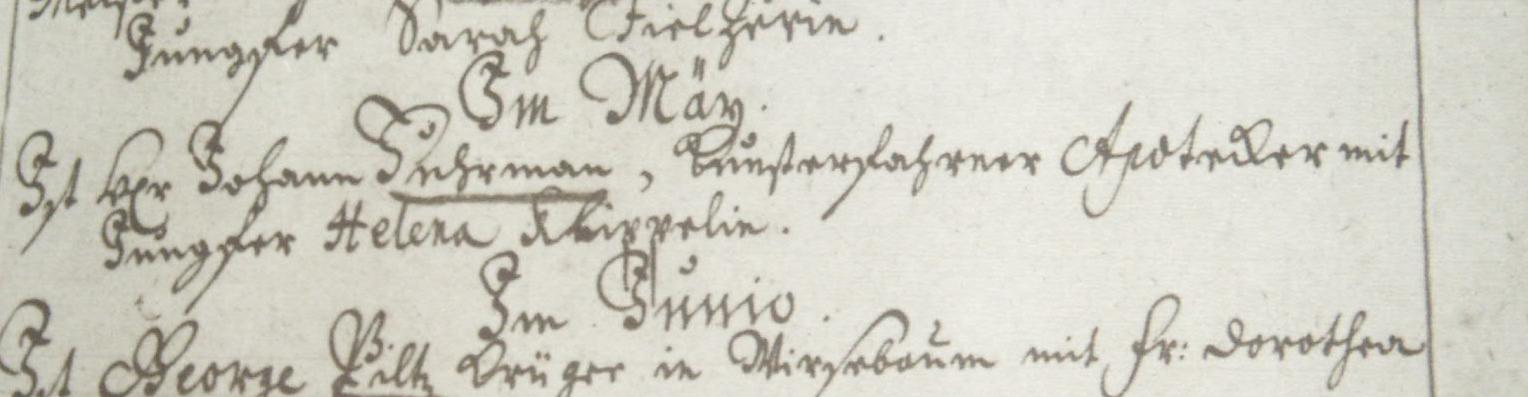 Jungfer Sarah Fielzerin.
Im Mäy.
Ist Hr Johann Fuhrman, Kunsterfahrner Apotecker mit
Jungfer Helena Klippelin.
Im Junio.
Ist George Piltz Krüger in Wirsebaum mit Fr: Dorothea